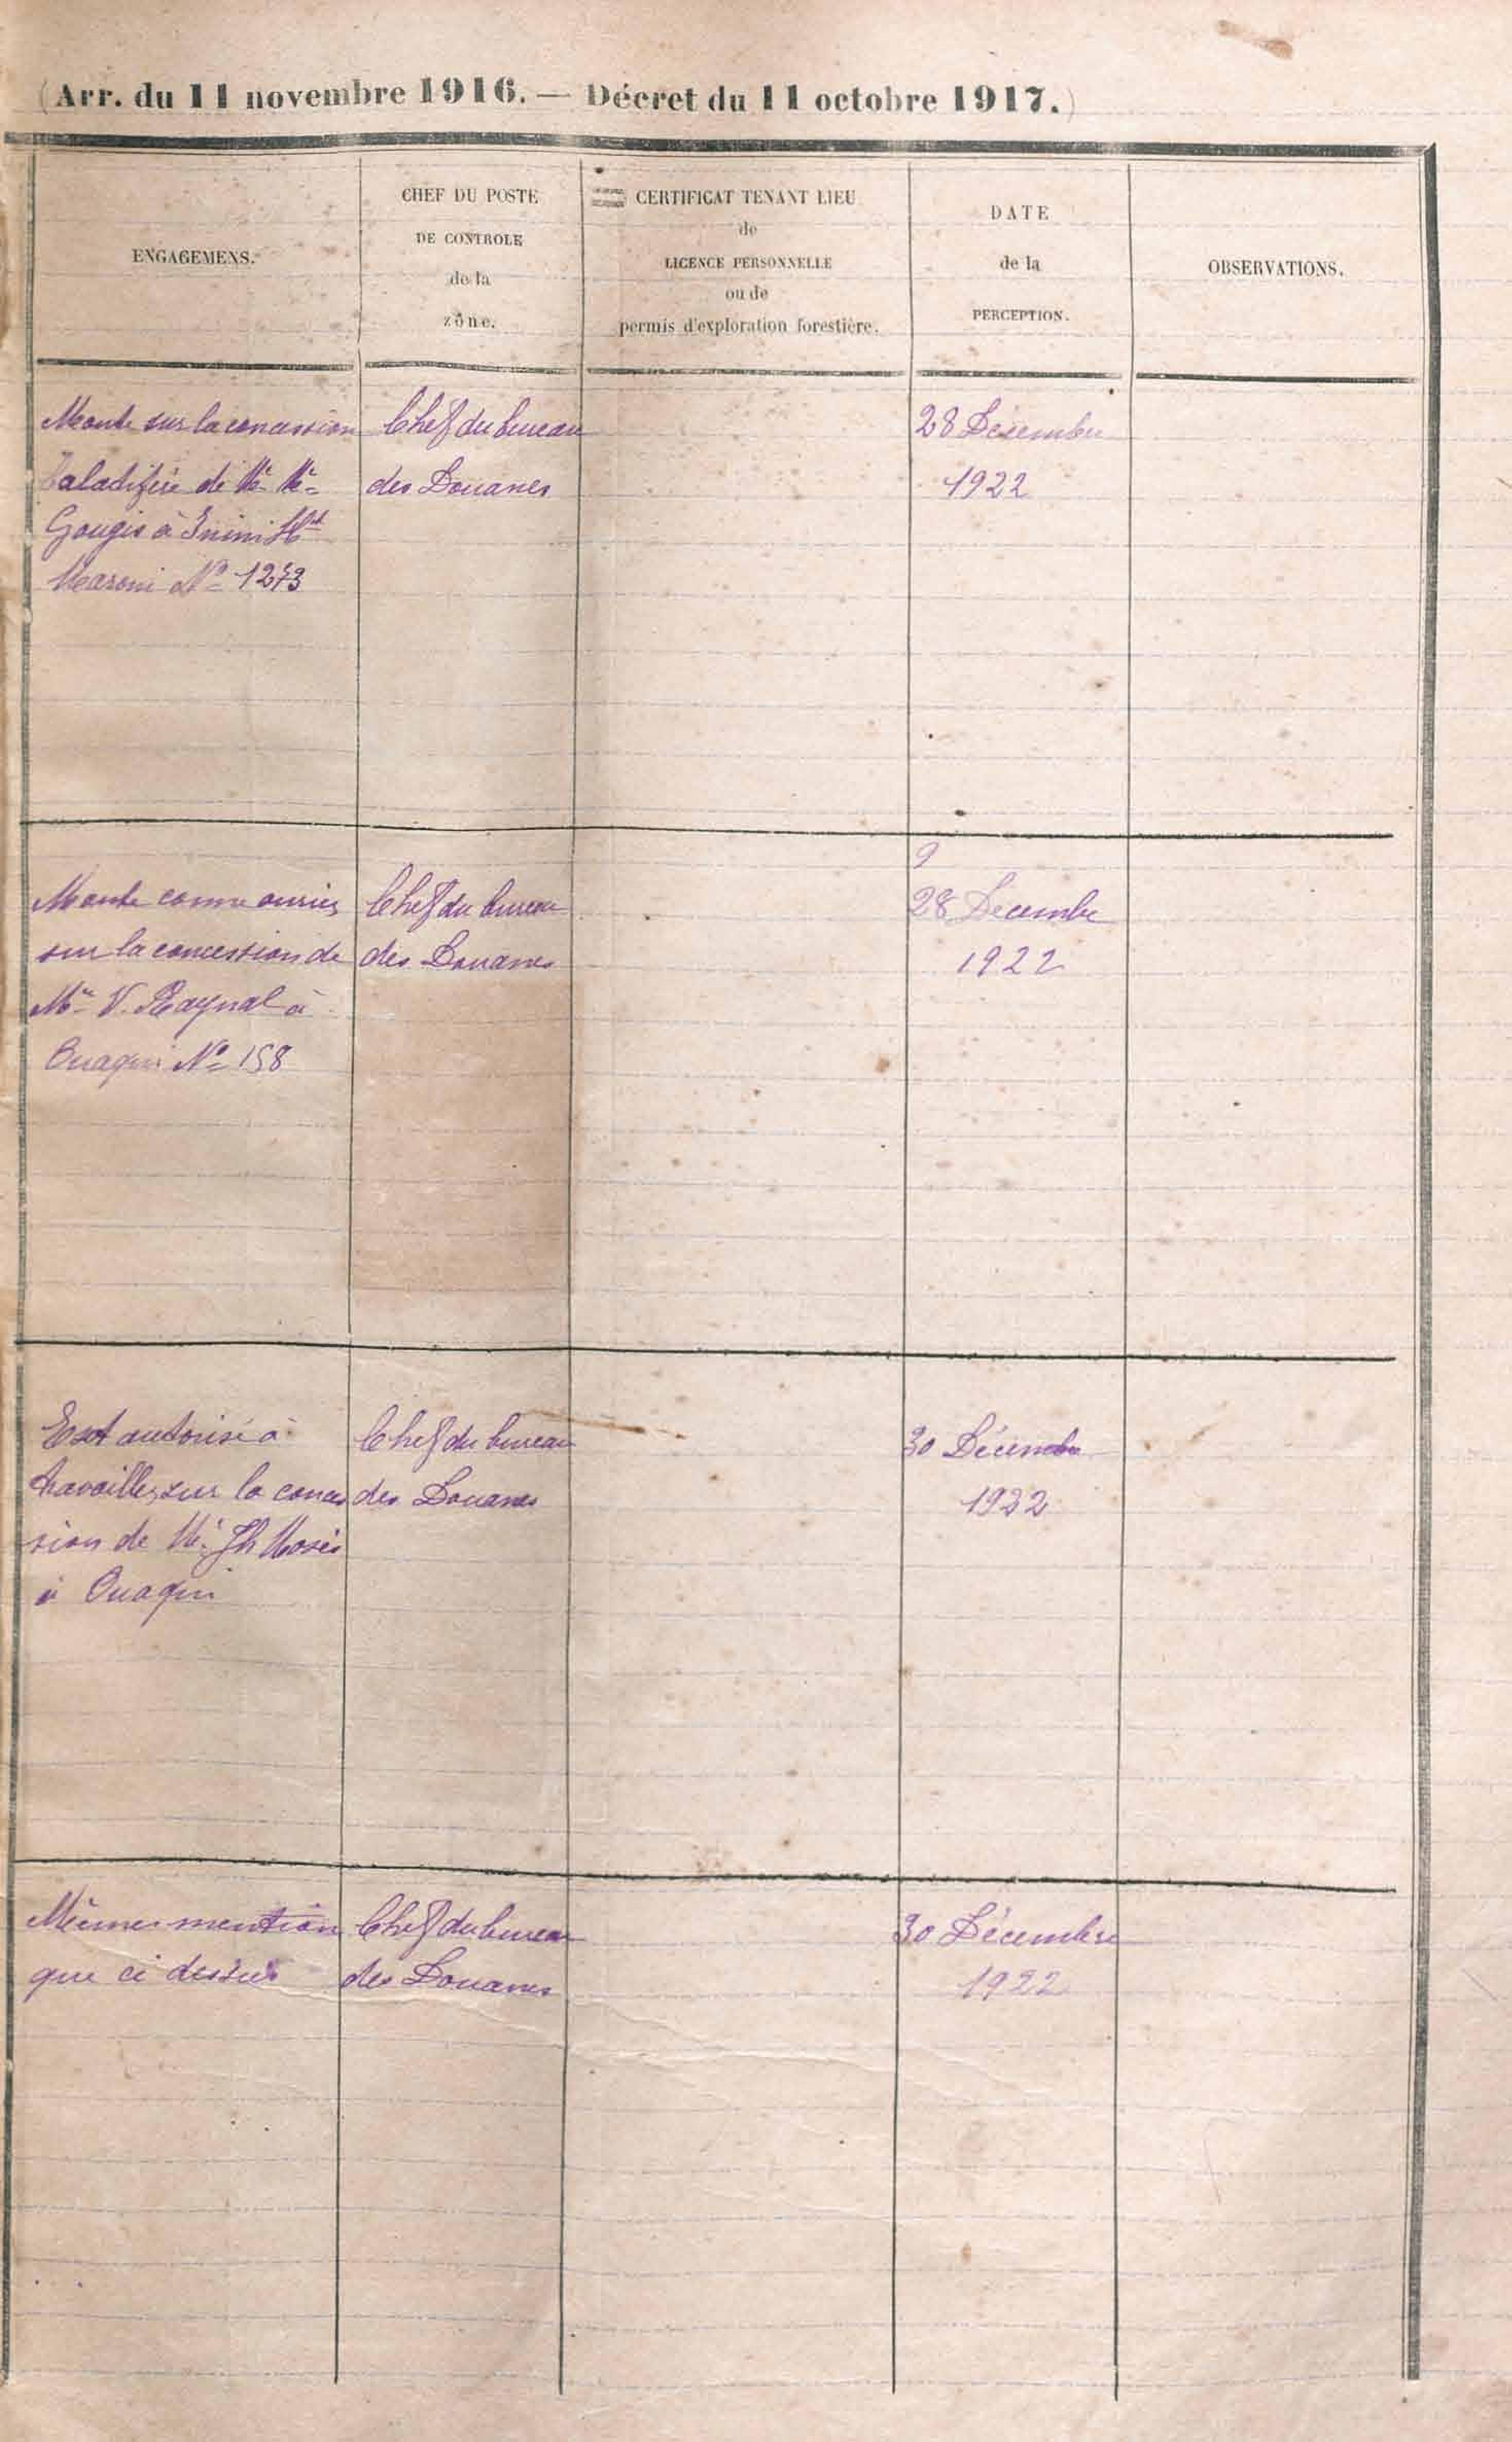 (Arr. du 11 novembre 1916. — Décret du 11 octobre 1917.)
ENGAGEMENS.
CHEF DU POSTE
DE CONTROLE
de la
zône.
CERTIFICAT TENANT LIEU
de
LICENCE PERSONNELLE
ou de
permis d'exploration forestière.
DATE
de la
PERCEPTION.
OBSERVATIONS.
Monte sur la concession
de Mr Mr
Gougis à Inini Ht
Maroni No 1273
Chef du bureau
des Douanes
28 Décembre
1922
Monte comme ouvrier
sur la concession de
Mr V. Raynal à
Ouaqui No 158
Chef du bureau
des Douanes
9
28 Décembre
1922
Est autorisé à
travailler sur la conces
sion de Mr Jh
à Ouaqui
Chef du bureau
des Douanes
30 Décembre
1922
Mêmes mention
que ci dessus
Chef du bureau
des Douanes
30 Décembre
1922